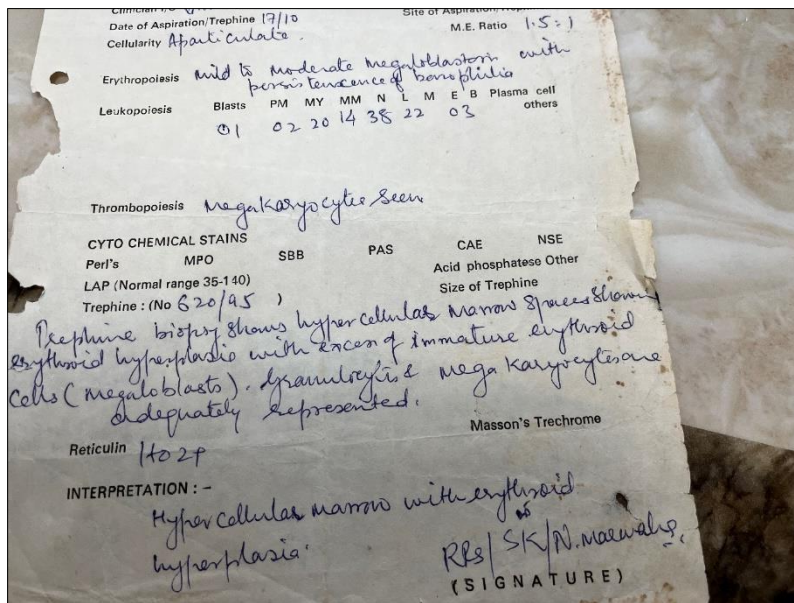 Date of Aspiration/Trephine 17/10 Site of Aspiration/Trephine
Cellularity Aparticulate. M.E. Ratio 1.5:1
Erythropoiesis Mild to moderate megaloblastosis with
persistence of basophilia
Leukopoiesis Blasts PM MY MM N L M E B Plasma cell
others
01 02 20 14 38 22 03
Thrombopoiesis Megakaryocytes seen
CYTO CHEMICAL STAINS
Perl's MPO SBB PAS CAE NSE
LAP (Normal range 35-140) Acid phosphatese Other
Trephine : (No 620/95 ) Size of Trephine
Trephine biopsy shows hypercellular marrow spaces showing
erythroid hyperplasia with excess of immature erythroid
cells (megaloblasts). Granulocytes & megakaryocytes are
adequately represented.
Masson's Trechrome
Reticulin 1+ to 2+
INTERPRETATION : -
Hypercellular marrow with erythroid
hyperplasia.
RRs/SK/N.
(SIGNATURE)